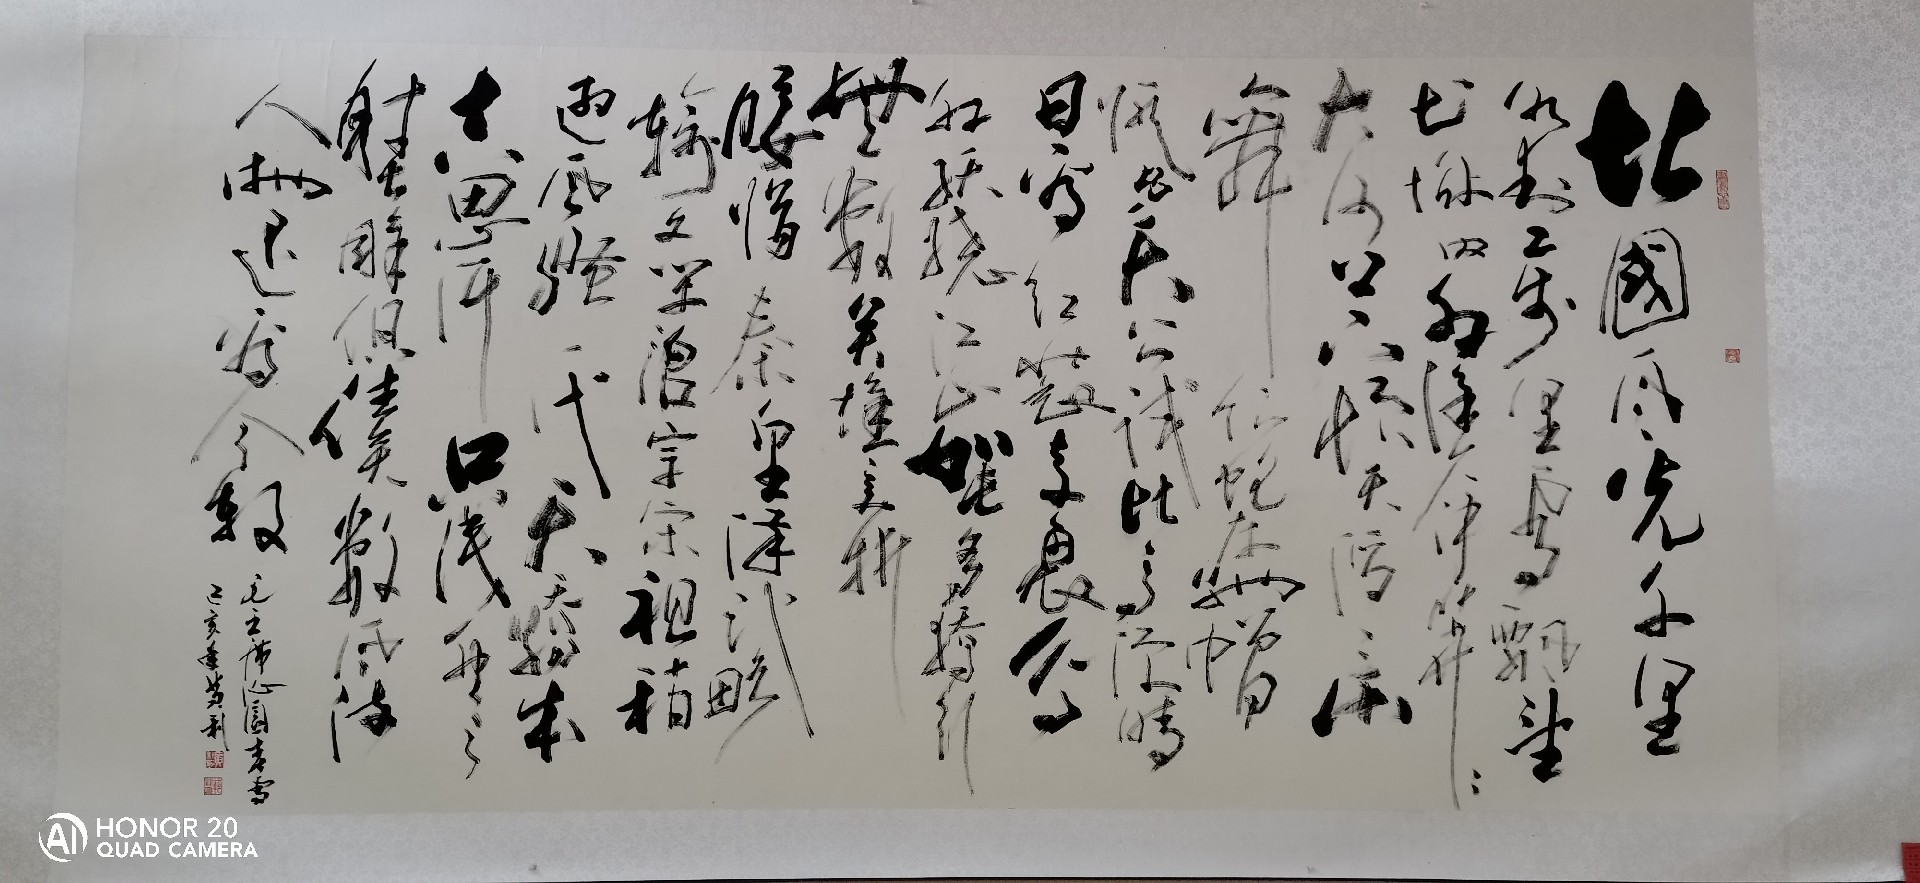 北國风光千里
冰封万里雪飘望
长城内外惟余莽〻
大河上下顿失滔〻山
舞银蛇原驰蜡
象欲与天公试比高须晴
日看红装素裹分
外妖娆江山如此多娇引
無數英雄竞折
腰惜秦皇漢武略
輸文采唐宗宋祖稍
遜风骚一代天驕成
吉思汗只识弯弓
射大雕俱往矣數风流
人物还看今朝
毛主席沁園春雪
己亥年黄利
HONOR 20
QUAD CAMERA